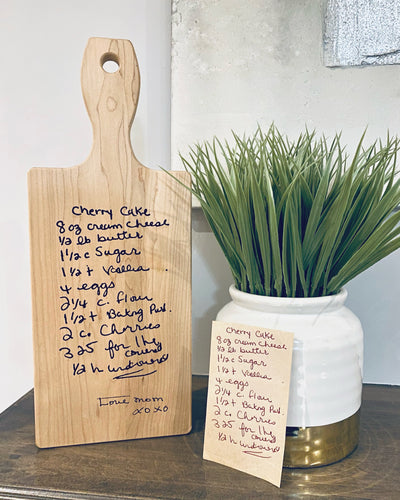 Cherry Cake
8 oz cream cheese
1/2 lb butter
1 1/2 c Sugar
1 1/2 t Vanilla
4 eggs
2 1/4 c. flour
1 1/2 t Baking Pwd.
2 c. Cherries
325 for 1 hr
covered
1/2 h uncovered
Love mom
xoxo
Cherry Cake
8 oz cream cheese
1/2 lb butter
1 1/2 c Sugar
1 1/2 t Vanilla
4 eggs
2 1/4 c. flour
1 1/2 t Baking Pwd.
2 c. Cherries
325 for 1 hr
covered
1/2 h uncovered